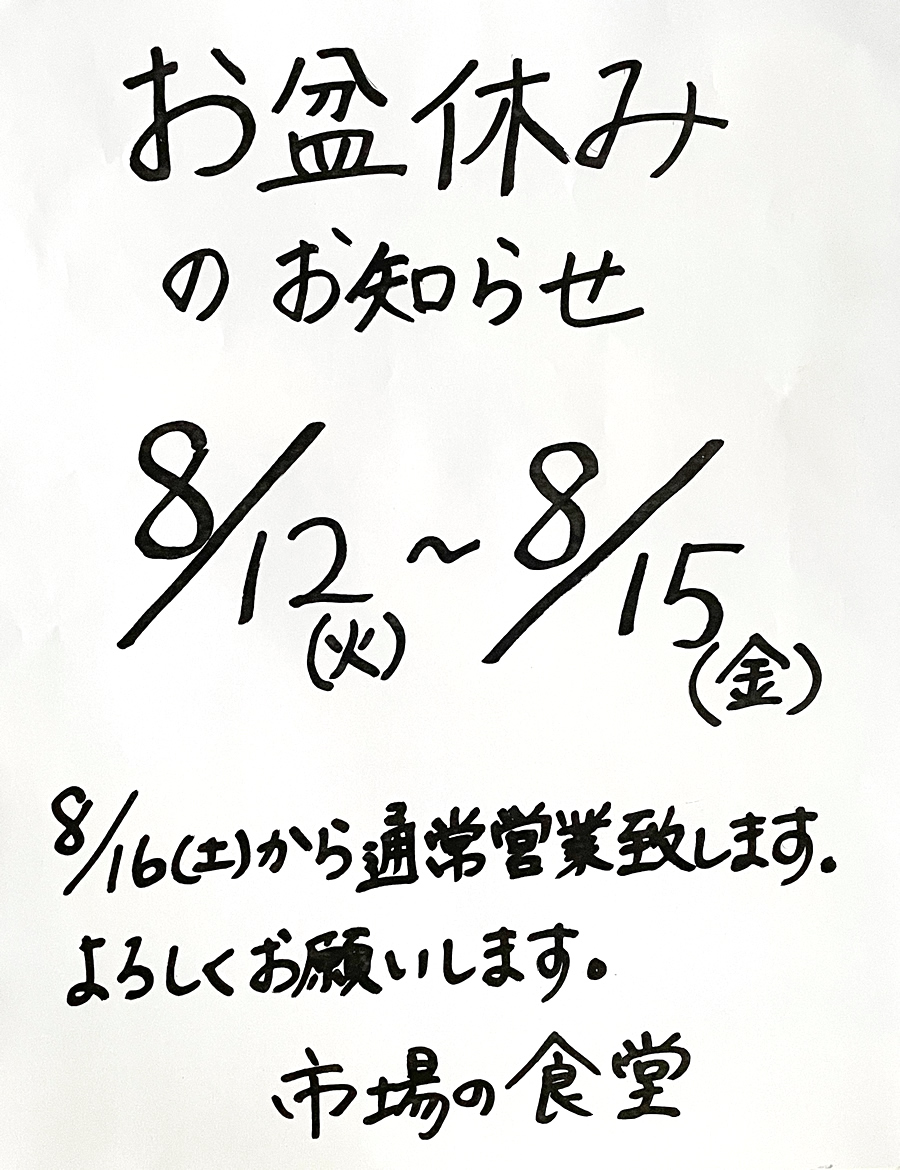 お盆休み
のお知らせ
8/12(火)~8/15(金)
8/16(土)から通常営業致します。
よろしくお願いします。
市場の食堂